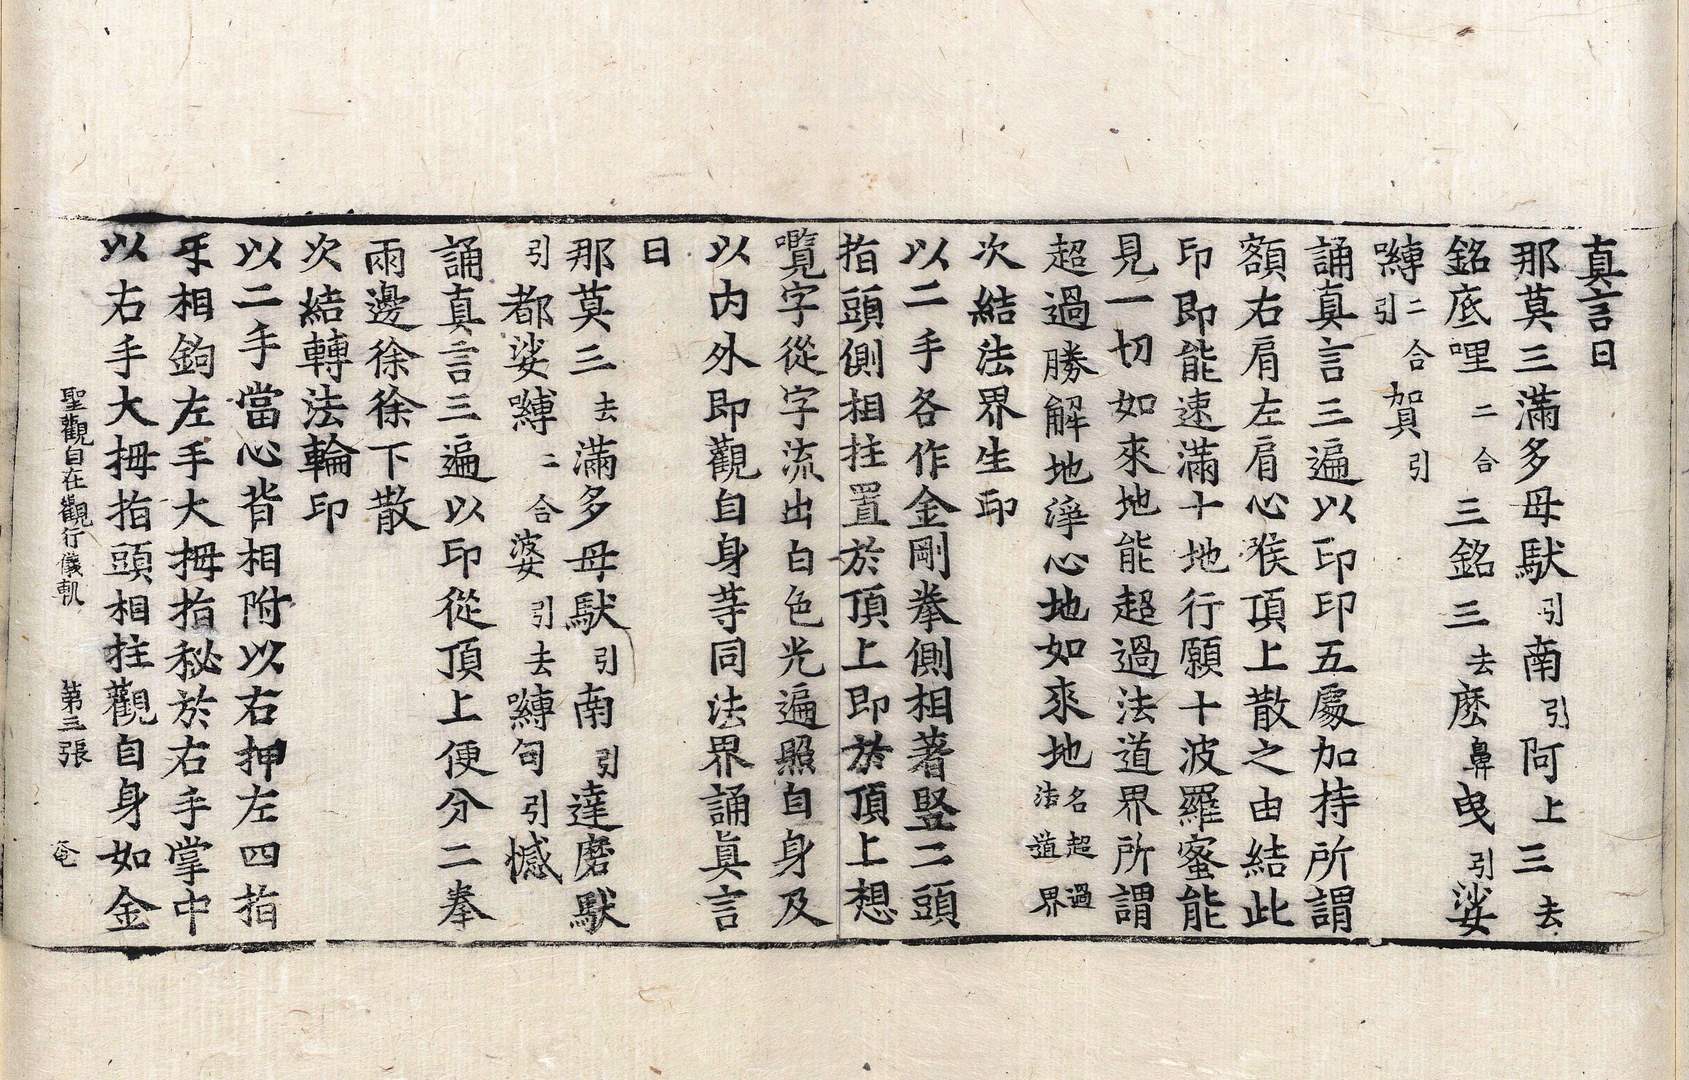 真言曰
那莫三滿多母馱引南引阿上三去
銘底哩二合三銘三去麼鼻曳引娑
嚩二合引賀引
誦真言三遍以印印五處加持所謂
額右肩左肩心㗋頂上散之由結此
印即能速滿十地行願十波羅蜜能
見一切如來地能超過法道界所謂
超過勝解地淨心地如來地名超過法道界
次結法界生印
以二手各作金剛拳側相著竪二頭
指頭側相拄置於頂上即於頂上想
嚂字從字流出白色光遍照自身及
以内外即觀自身等同法界誦眞言
曰
那莫三去滿多母馱引南引達磨馱
引都娑嚩二合婆引去嚩句引憾
誦真言三遍以印從頂上便分二拳
兩邊徐徐下散
次結轉法輪印
以二手當心背相附以右押左四指
手相鉤左手大拇指秘於右手掌中
以右手大拇指頭相拄觀自身如金
聖觀自在觀行儀軌 第三張